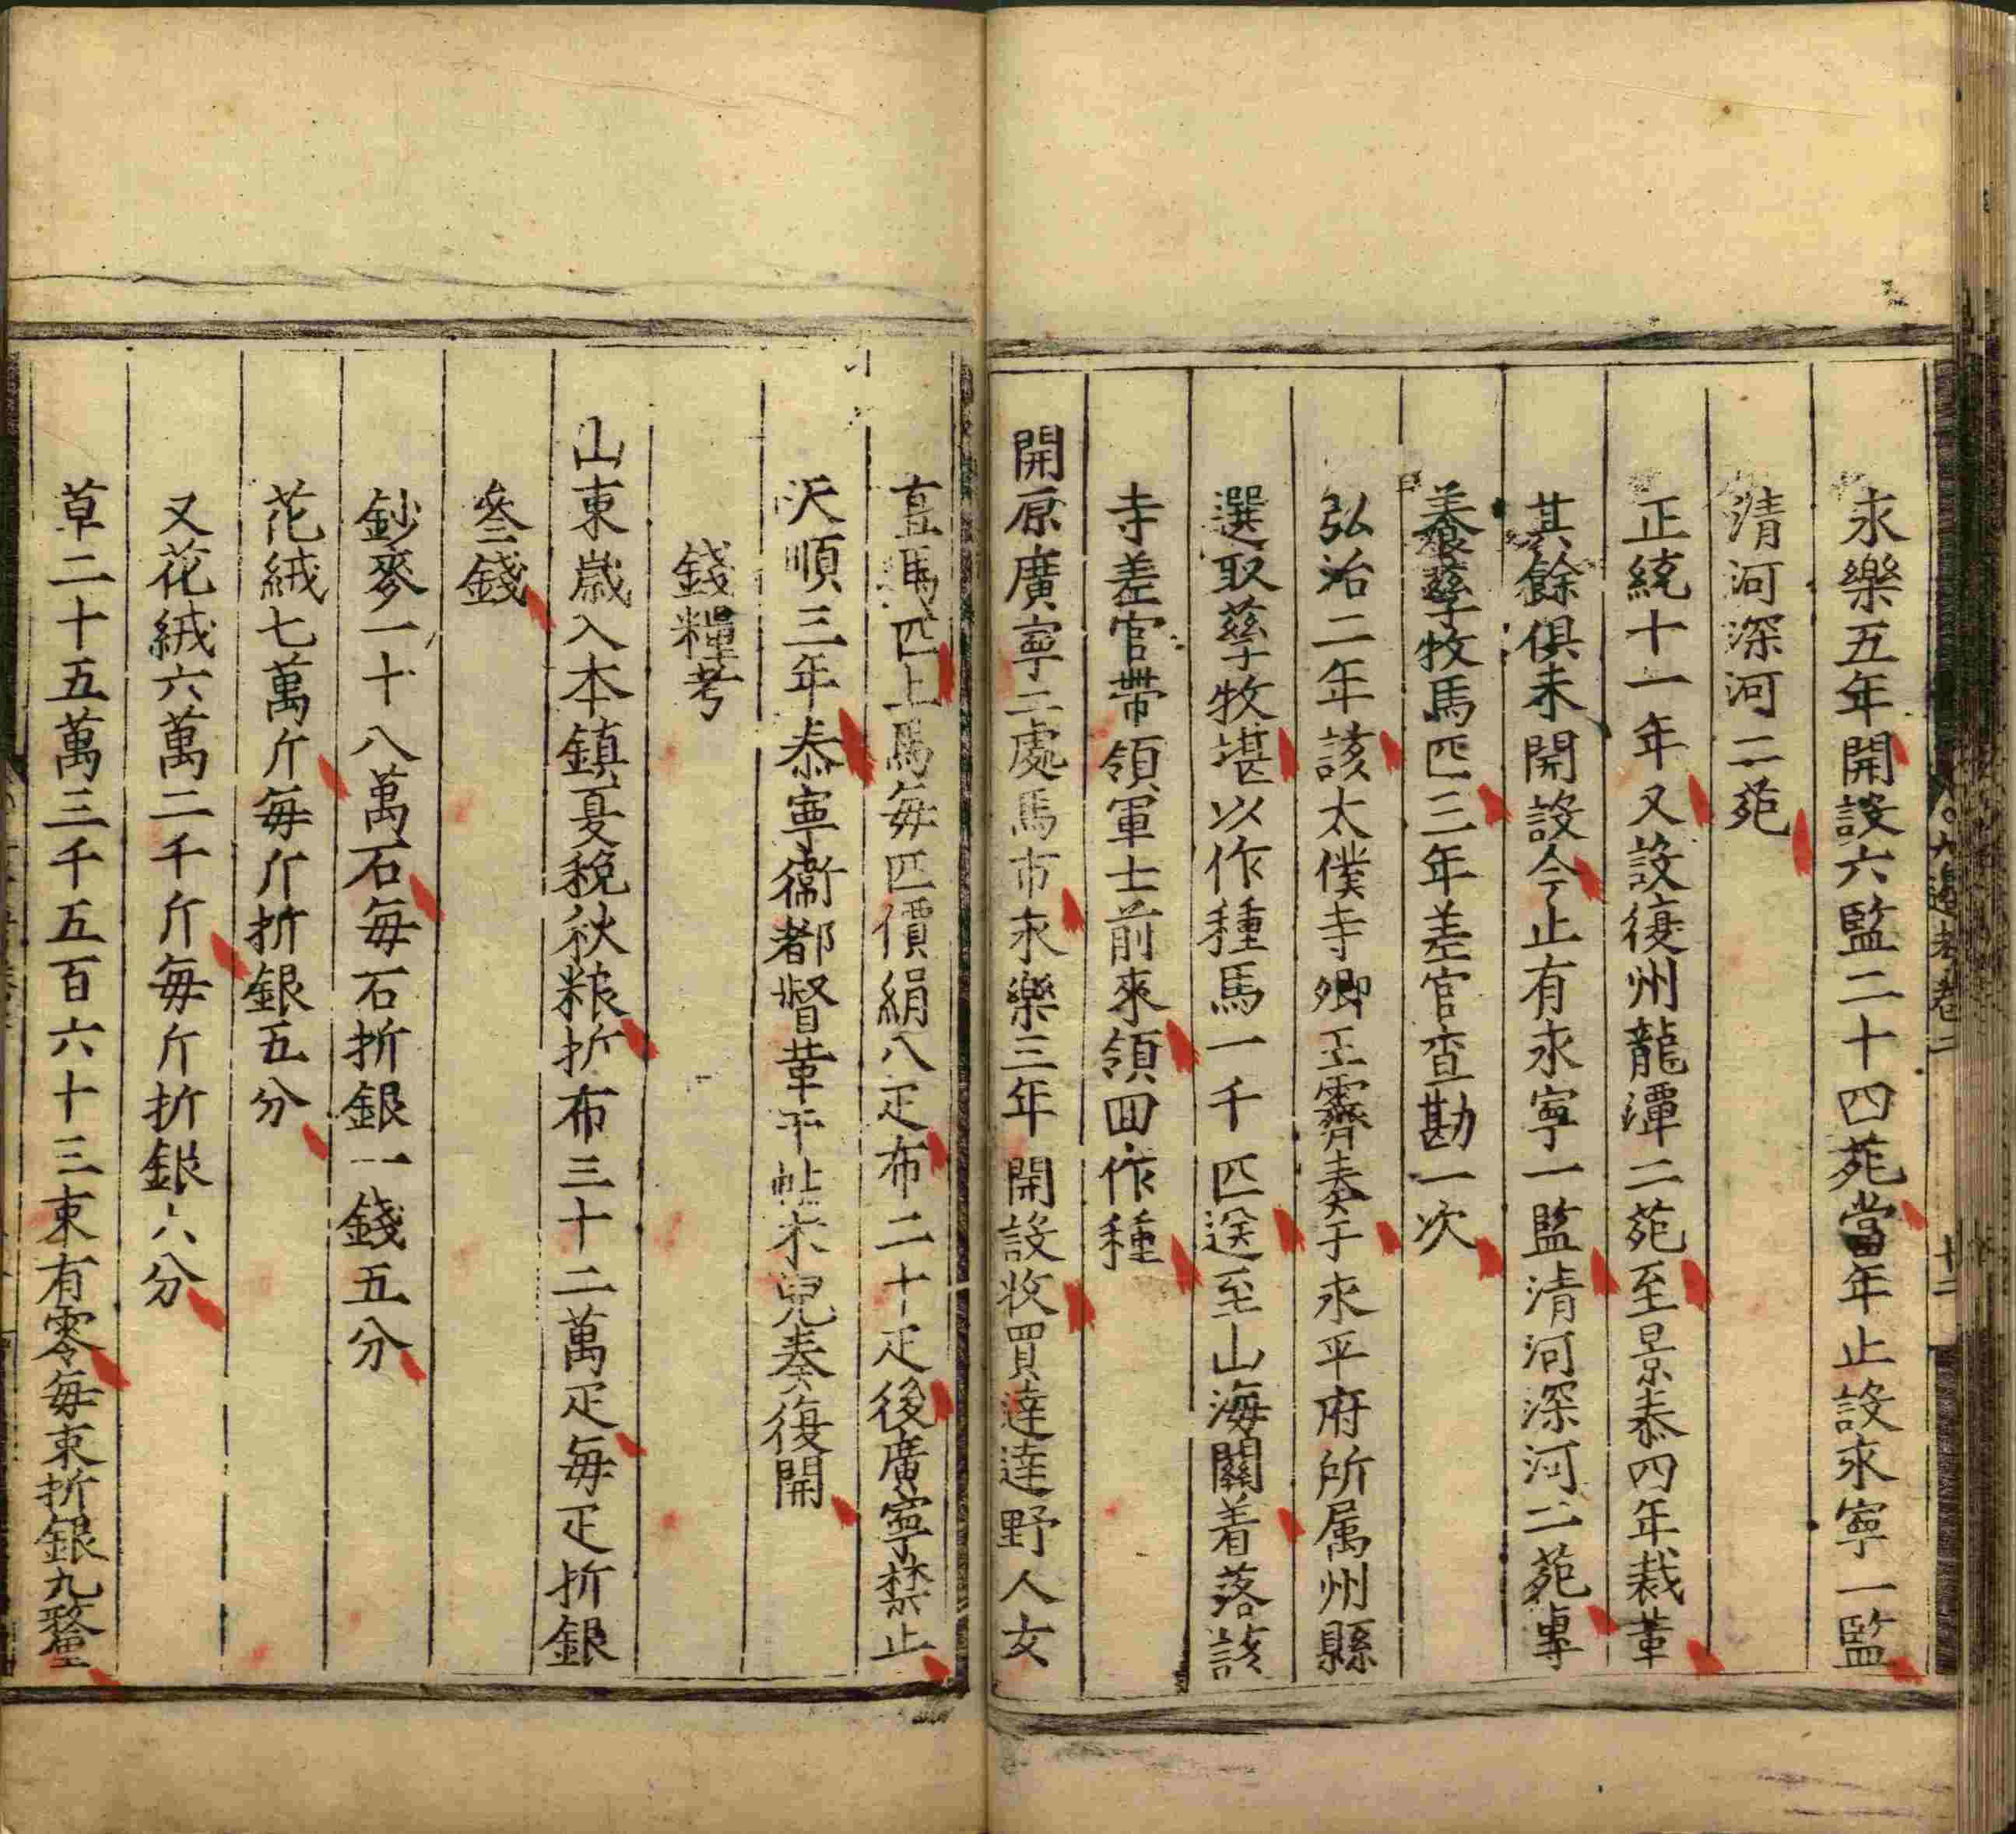 永樂五年開設六監二十四苑當年止設永寧一監
清河深河二苑
正統十一年又設復州龍潭二苑至景泰四年裁革
其餘俱未開設今止有永寧一監清河深河二苑專
養孳牧馬匹三年差官查勘一次
弘治二年該太僕寺卿王霽奏于永平府所属州縣
選取孳牧堪以作種馬一千匹送至山海關着落該
寺差官帶領軍士前來領回作種
開原廣寧二處馬市永樂三年開設收買達達野人女
直馬匹上馬每匹價絹八疋布二十疋後廣寧禁止
天順三年泰寧衞都督革干帖木兒奏復開
錢糧考
山東歲入本鎮夏稅秋粮折布三十二萬疋每疋折銀
叄錢
鈔麥一十八萬石每石折銀一錢五分
花絨七萬斤每斤折銀五分
又花絨六萬二千斤每斤折銀六分
草二十五萬三千五百六十三束有零每束折銀九釐